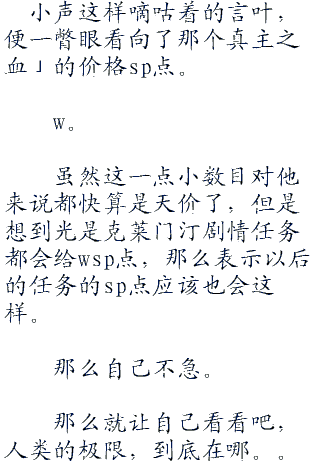 小声这样嘀咕着的言叶，
便一瞥眼看向了那个真主之
血」的价格sp点。
w。
虽然这一点小数目对他
来说都快算是天价了，但是
想到光是克莱门汀剧情任务
都会给wsp点，那么表示以后
的任务的sp点应该也会这
样。
那么自己不急。
那么就让自己看看吧，
人类的极限，到底在哪。。